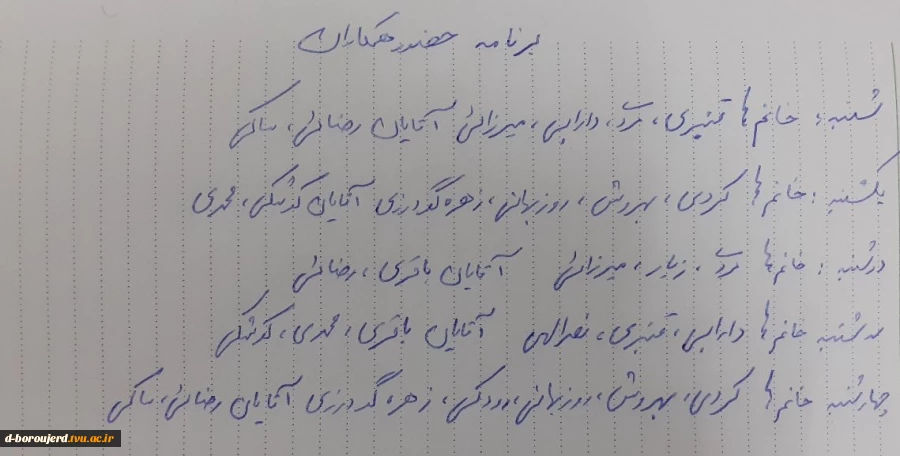 برنامه حضور همکاران
شنبه: خانم ها قنبری، دارابی، میرزائی آقایان رضائی، ساکی
یکشنبه: خانم ها کردی، بهروش، روزبهانی، زهره گودرزی آقایان کوشکی، محمدی
دوشنبه: خانم ها زیار، میرزائی آقایان باقری، رضائی
سه شنبه خانم ها دارابی، قنبری، نصرالهی آقایان باقری، محمدی، کوشکی
چهارشنبه خانم ها کردی، بهروش، روزبهانی، رودکی، زهره گودرزی آقایان رضائی، ساکی
d-boroujerd.tvu.ac.ir